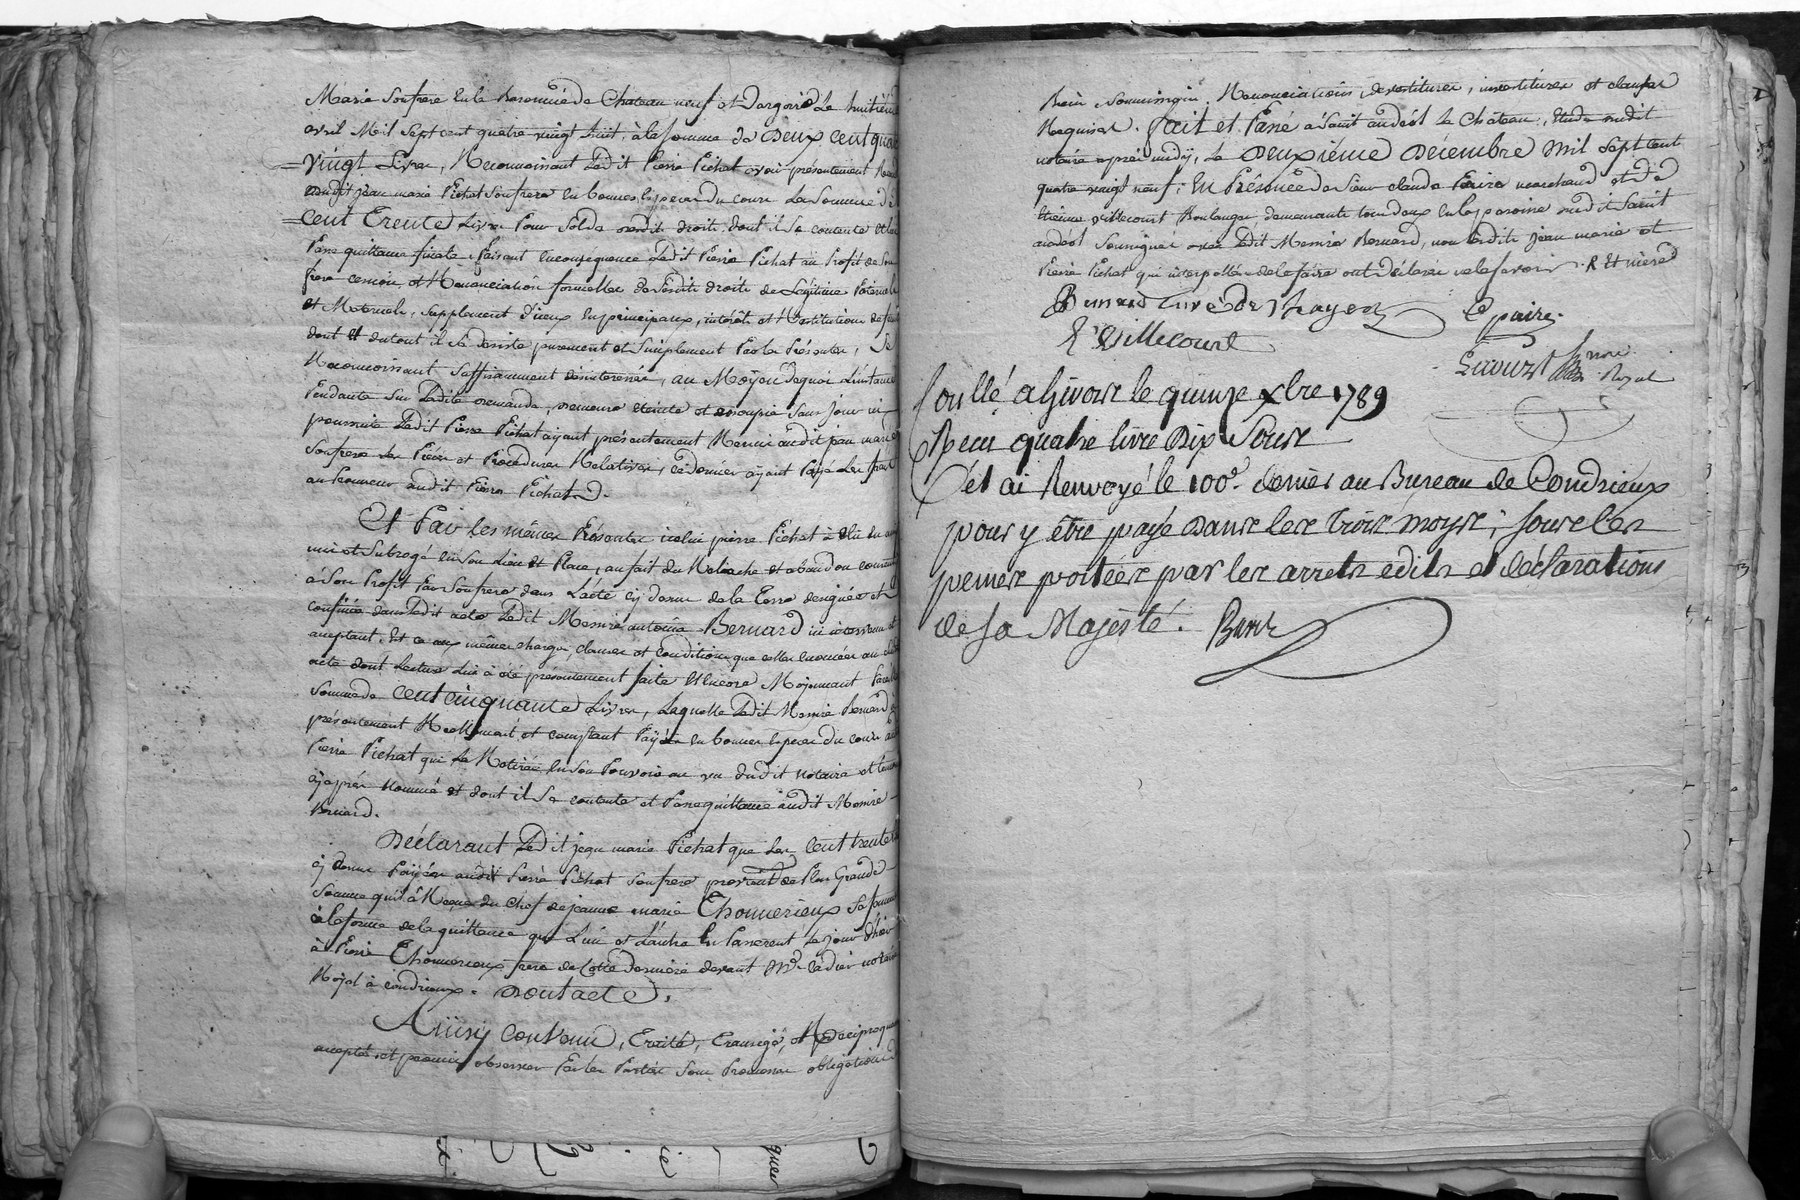 Marie son frere en la Baronnie de Chateau neuf et Dargoire Le huitiem
avril Mil Sept cent quatre vingt huit, à la somme de Deux cent quat
vingt Livres, Reconnoissant Ledit Pierre Pichat avoir présentement Receu
dudit jean marie Pichat son frere en bonnes Especes du cours La Somme de
cent Trente Livres Pour Solde desdit droits dont il Se contente et lui
Passe quittance finale, faisant en consequence Ledit Pierre Pichat au Profit de Son
frere cession et Renonciation formelle de Sesdits droits de Légitime Paternel
et Maternels, Supplement d'iceux en principaux, interêts et Restitution de fruits
dont et du tout il se desiste purement et simplement Par les Présentes, Se
Reconnoissant Suffisamment désinteressé, au Moÿen dequoi L'instance
Pendante Sur Ladite demande, demeure éteinte et assoupie Sans jour ni
poursuite Ledit Pierre Pichat ayant présentement Remis audit jean marie
Son frere Les Pièces et Procédures Relatives, ce dernier ayant Payé Les frais
au Procureur dudit Pierre Pichat.
Et Par les mêmes Présentes icelui pierre Pichat à élû en ami
mis et Subrogé en Son Lieu et Place, au fait du Relache et abandon convenu
à Son Profit Par Son frere dans L'acte cy dessus de la Terre designée et
confinée dans Ledit acte Ledit Messire antoine Bernard ici intervenu et
acceptant, Et ce aux mêmes charges, clauses et conditions que celles énoncées au dit
acte dont Lecture Lui à été présentement faite et encore Moyennant Pareille
Somme de cent cinquante Livres, Laquelle Ledit Messire Bernard à
présentement Reellement et comptant Payée en bonnes Especes du cours audit
Pierre Pichat qui La Retirée en Son Pouvoir au vu dudit notaire et temoins
cÿ après nommé et dont il Se contente et Passe quittance audit Messire
Bernard.
Déclarant Ledit jean marie Pichat que Les cent trente
cÿ dessus Payées audit Pierre Pichat Son frere provient de Plus Grande
Somme qu'il à Reçue du chef de jeanne marie Thonnerieux Sa femme
à la forme de la quittance que L'un et L'autre En Passerent Le jour d'hier
à Pierre Thonnerieux frere de cette derniere devant Me Cadier notaire
Royal à condrieux. Dont acte.
Ainsy Convenu, Traité, Transigé, et Reciproquement
accepté, et promis observer Par les Parties Sous Promesses obligations de
Bien Soumission, Renonciations, devestitures, investitures et clauses
Requises. Fait et Passé à Saint andéol le Château, Etude dudit
notaire après midÿ, Le Deuxième Décembre Mil Sept cent
quatre vingt neuf; En Présence de Sieur claude Paire marchand et de
Etienne Villecourt Boulanger demeurants tous deux en la paroisse dudit Saint
andéol Soussignés avec Ledit Messire Bernard, non Lesdits jean marie et
Pierre Pichat qui interpellés de le faire ont déclaré ne le savoir.
Bernard Curé
C paire.
E Villecourt
Royal
Conllé a Givors le quinze xbre 1789
Recu quatre livre Dix Sours
et ai Renvoyé le 100e. denier au Bureau de Condrieux
pour y être payé Dans les trois moys; sous les
peines portées par les arrets edits et déclarations
de sa Majesté.